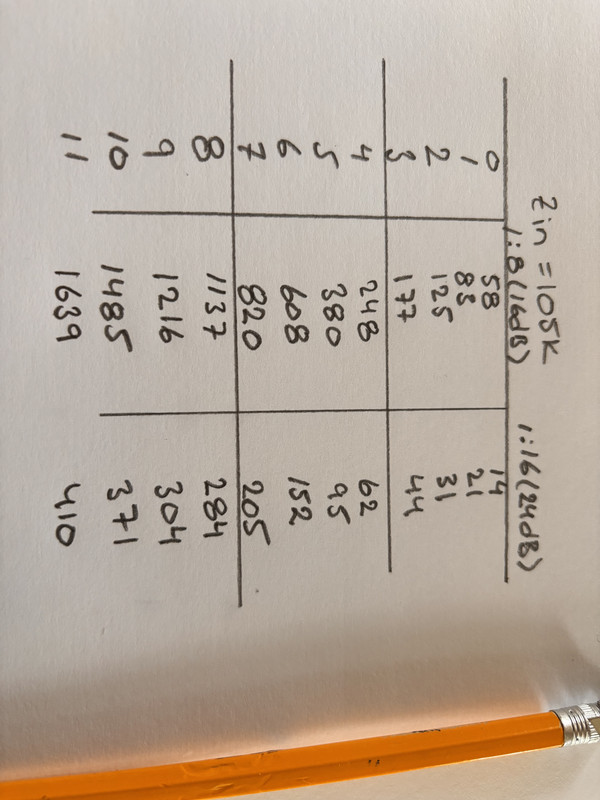 Zin = 105K
1:8 (16dB) 1:16 (24dB)
0 58 14
1 83 21
2 125 31
3 177 44
4 248 62
5 380 95
6 608 152
7 820 205
8 1137 284
9 1216 304
10 1485 371
11 1639 410